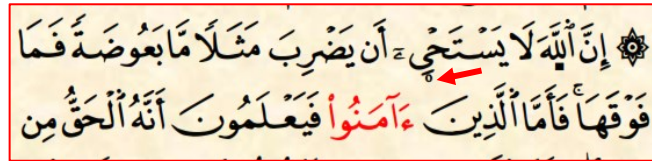 ۞ إِنَّ ٱللَّهَ لَا يَسْتَحْىِۦٓ أَن يَضْرِبَ مَثَلًا مَّا بَعُوضَةً فَمَا
فَوْقَهَا ۚ فَأَمَّا ٱلَّذِينَ ءَامَنُوا۟ فَيَعْلَمُونَ أَنَّهُ ٱلْحَقُّ مِن